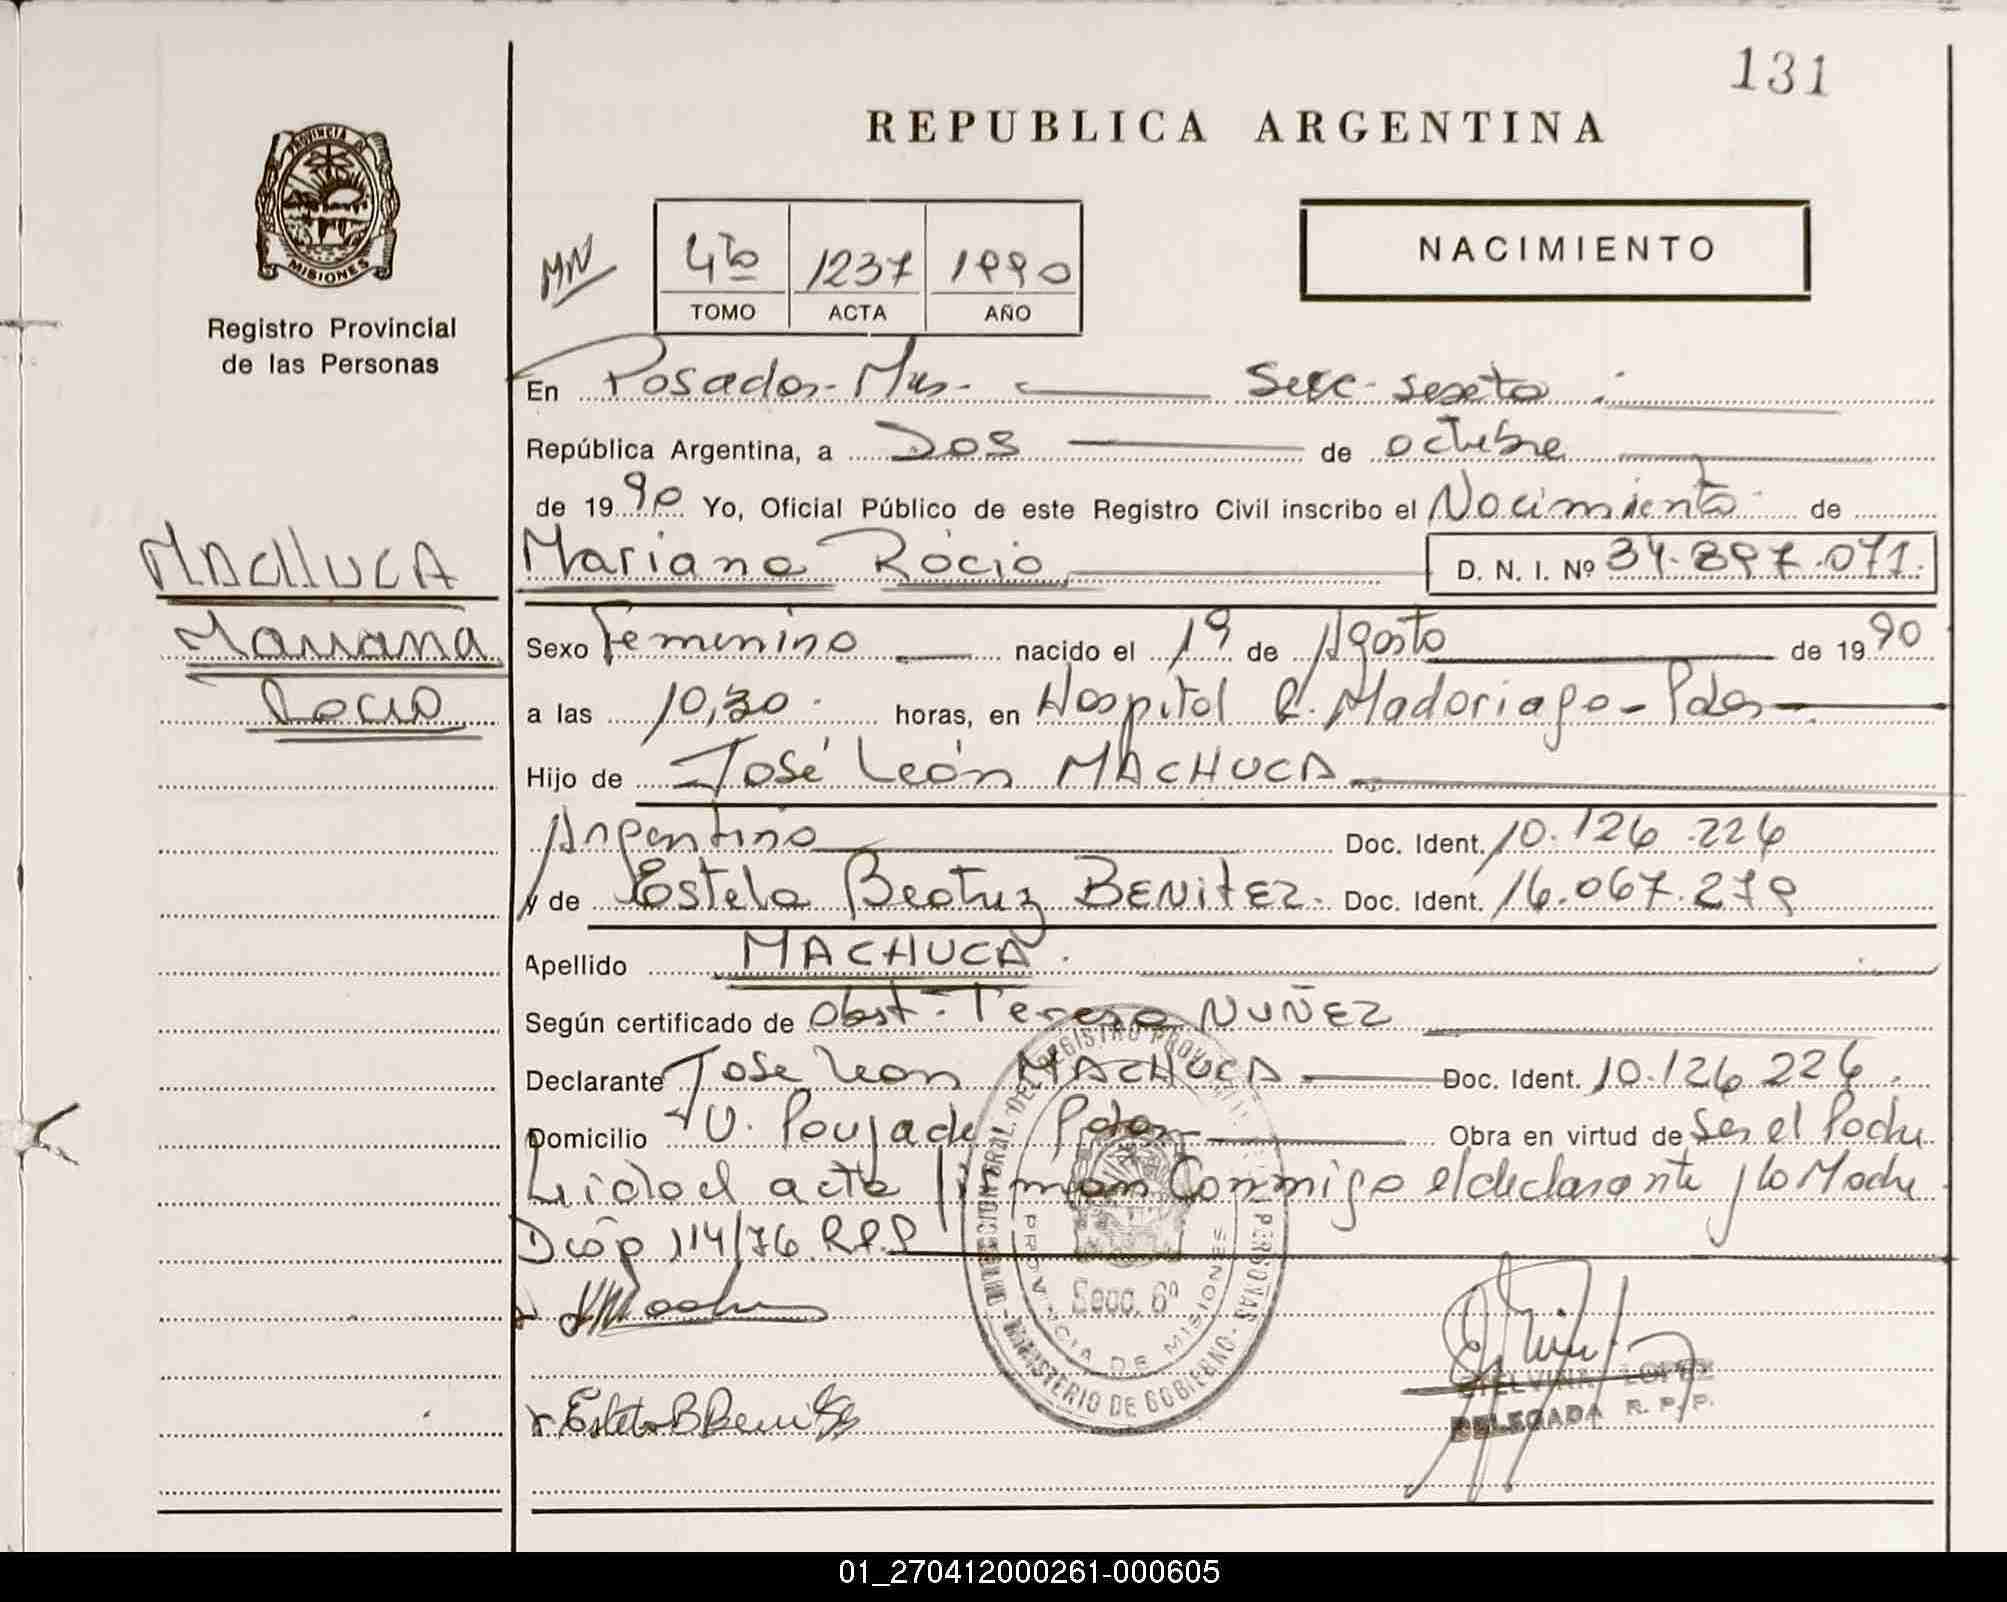 131
REPUBLICA ARGENTINA
PROVINCIA DE
MISIONES
Registro Provincial
de las Personas
4to 1237 1990
TOMO ACTA AÑO
NACIMIENTO
En Posadas - Mnes - Secc - sexto
República Argentina, a Dos de octubre
de 1990 Yo, Oficial Público de este Registro Civil inscribo el Nacimiento de
MACHUCA
Mariana
Rocio
Mariana Rocio D. N. I. Nº 34.897.071.
Sexo Femenino nacido el 19 de Agosto de 1990
a las 10,30 horas, en Hospital R. Madariaga - Pdas
Hijo de José León MACHUCA
Argentino Doc. Ident. 10.126.226
y de Estela Beatriz BENITEZ. Doc. Ident. 16.067.279
Apellido MACHUCA.
Según certificado de Obst. Teresa NUÑEZ
Declarante Jose Leon MACHUCA Doc. Ident. 10.126.226.
Domicilio V. Poujade Pdas Obra en virtud de Ser el Padre
Leida el acta firman Conmigo el declarante y la Madre
Disp 114/76 R.P.P
DIRECCION GRAL. DEL REGISTRO PROVINCIAL DE LAS PERSONAS
MINISTERIO DE GOBIERNO
PROVINCIA DE MISIONES
Secc. 6º
Estela B Benitez
ETELVINA LOPEZ
DELEGADA R. P. P.
01_270412000261-000605